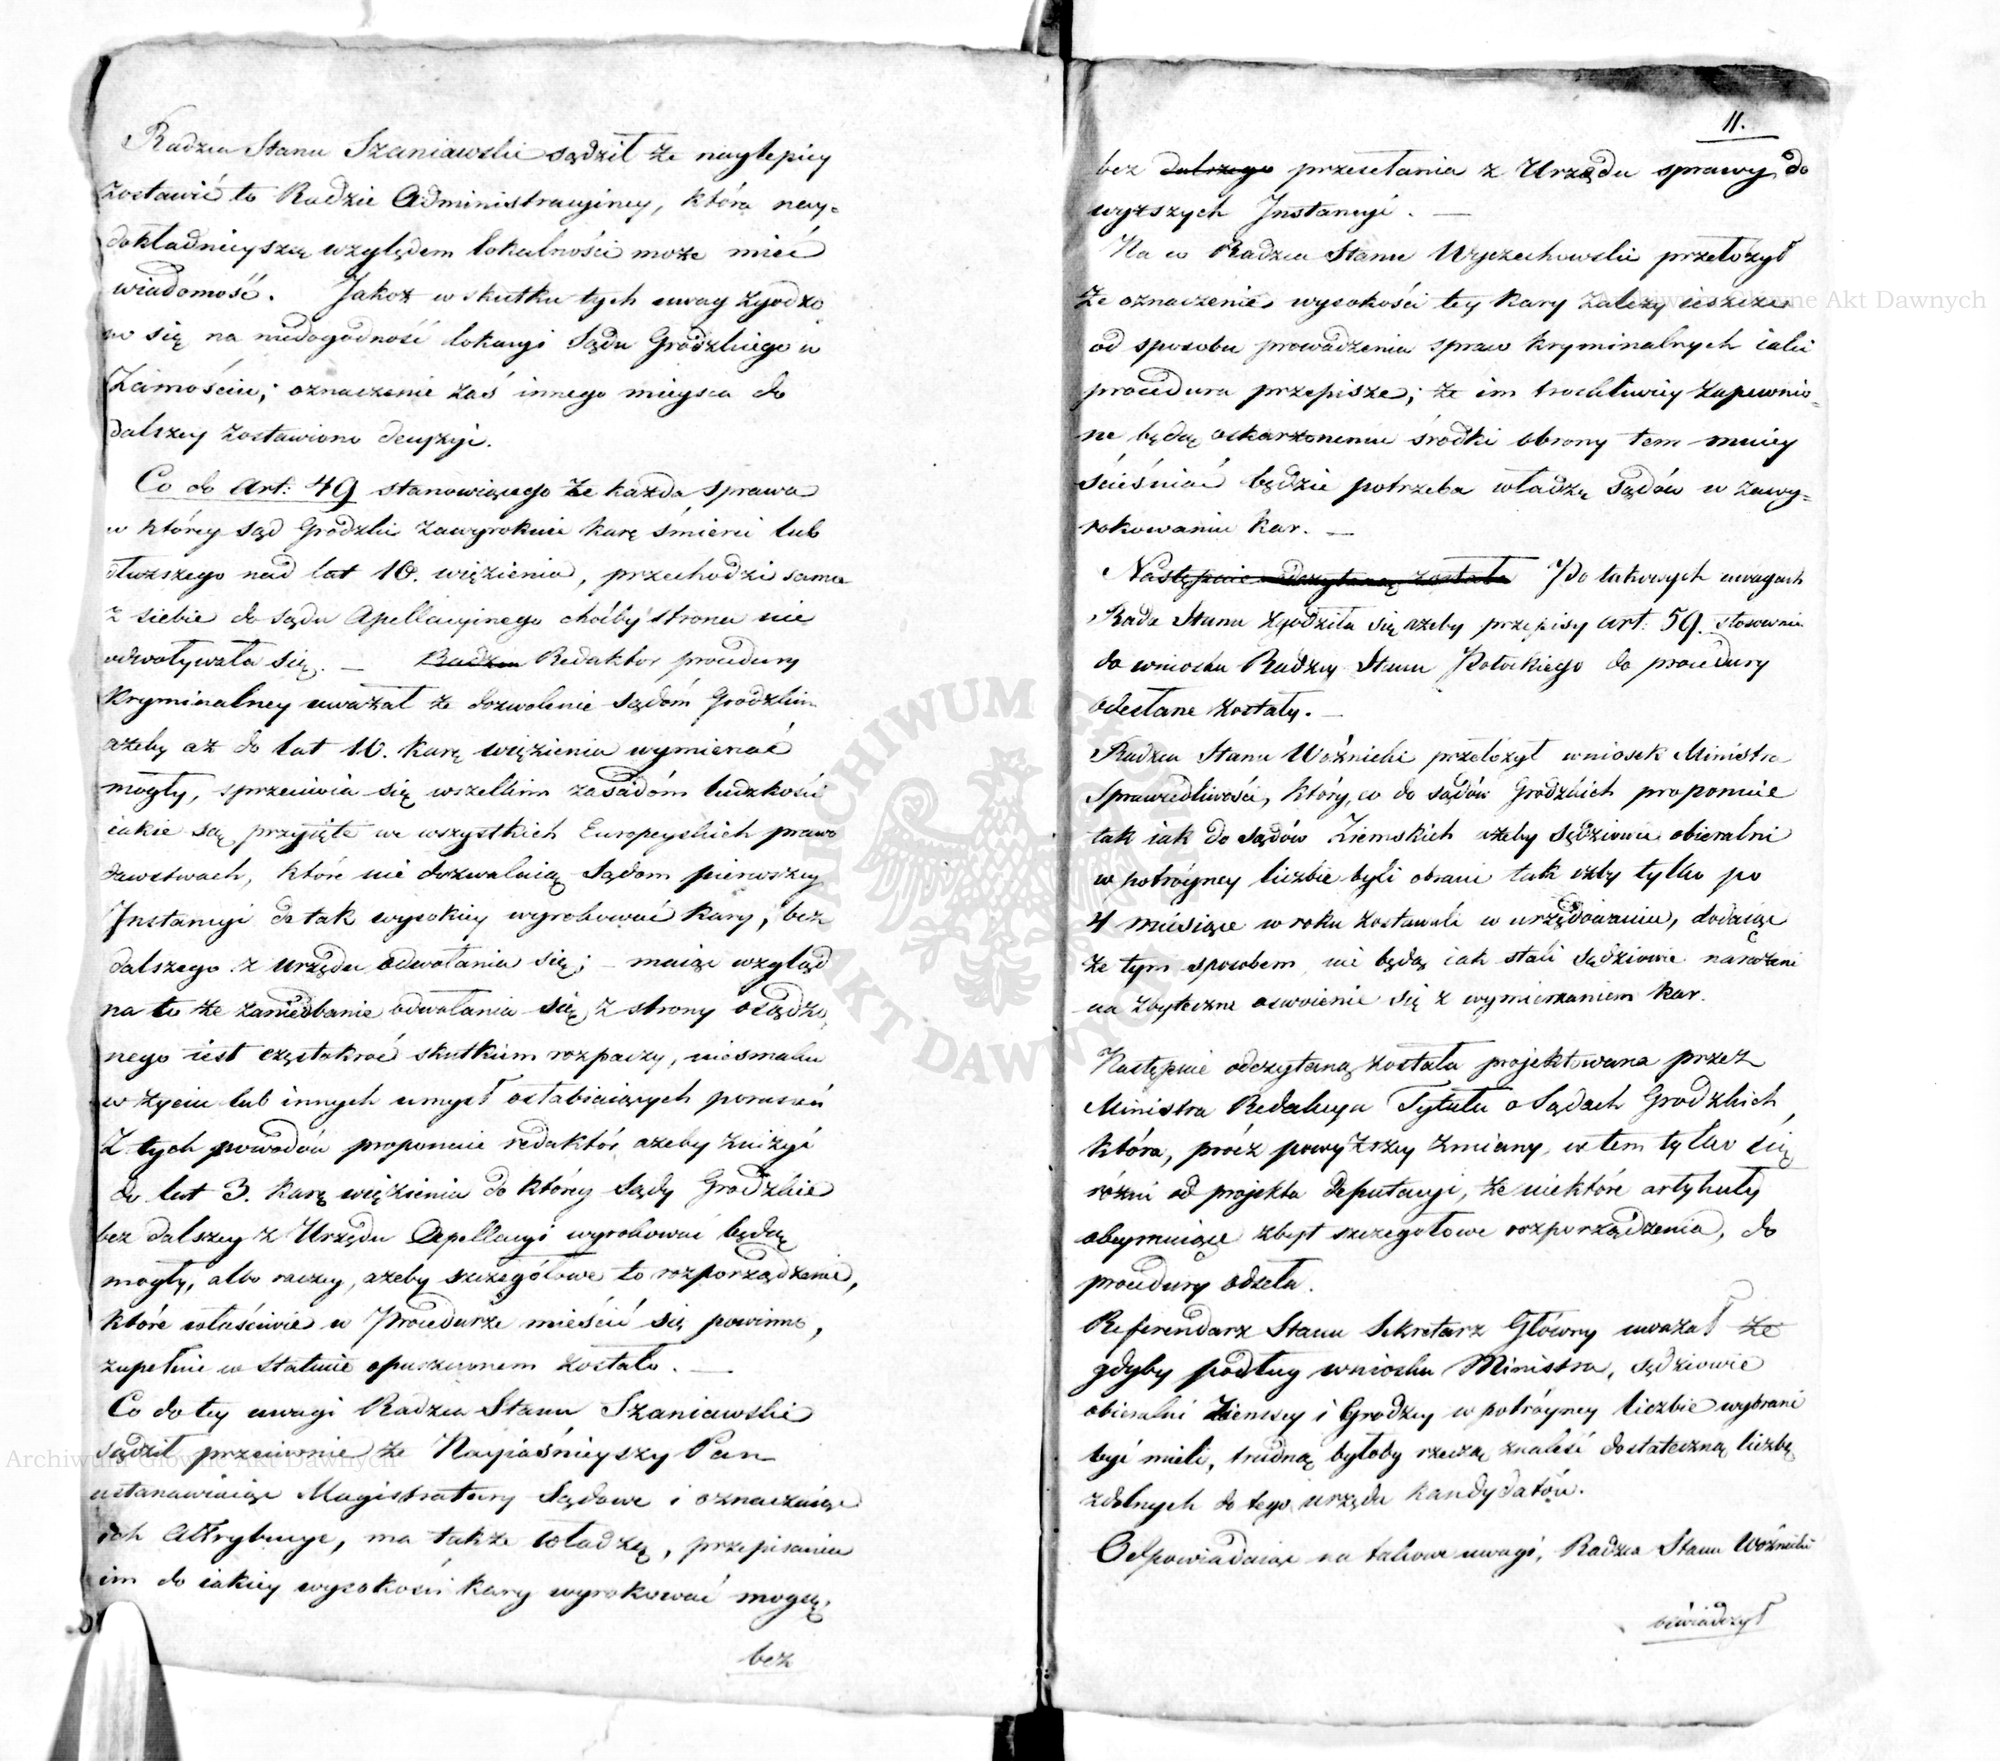 Radzca Stanu Szaniawski sądził że naylepiey
zostawić to Radzie Administracyiney, która nay-
dokładnieyszą względem lokalności może mieć
wiadomość. Jakoż w skutku tych uwag zgodzo
no się na niedogodność lokacyi Sądu Grodzkiego w
Zamościu; oznaczenie zaś innego mieysca do
dalszey zostawiono decyzyi.
Co do Art: 49 stanowiącego że każda sprawa
w którey Sąd Grodzki zawyrokuie karę śmierci lub
dłuższego nad lat 10. więzienia, przechodzi sama
z siebie do sądu Apellacyinego choćby strona nie
odwoływała się. — Radzca Redaktor procedury
kryminalney uważał że dozwolenie Sądom Grodzkim
ażeby aż do lat 10. karę więzienia wymierzać
mogły, sprzeciwia się wszelkim zasadom ludzkości
iakie są przyięte we wszystkich Europeyskich prawo
dawstwach, które nie dozwalaią Sądom pierwszey
Instancyi do tak wysokiey wyrokować kary, bez
dalszego z urzędu odwołania się; — maiąc wzgląd
na to że zaniedbanie odwołania się z strony osądzo
nego iest częstokroć skutkiem rozpaczy, niesmaku
w życiu lub innych umysł osłabiaiących poruszeń
Z tych powodów proponuie redaktor ażeby zniżyć
do lat 3. karę więzienia do którey Sądy Grodzkie
bez dalszey z Urzędu Apellacyi wyrokować będą
mogły, albo raczey, ażeby szczegółowe to rozporządzenie,
które właściwie w Procedurze mieścić się powinno,
zupełnie w Statucie opuszczonem zostało. —
Co do tey uwagi Radzca Stanu Szaniawski
sądził przeciwnie że Nayiaśnieyszy Pan
ustanawiaiąc Magistratury Sądowe i oznaczaiąc
ich Attrybucye, ma także władzę, przepisania
im do iakiey wysokości kary wyrokować mogą,
bez
11.
bez dalszego przesełania z Urzędu sprawy do
wyższych Instancyi. —
Na co Radzca Stanu Wyczechowski przełożył
że oznaczenie wysokości tey kary zależy ieszcze
od sposobu prowadzenia spraw kryminalnych iaki
procedura przepisze; że im troskliwiey zapewnio-
ne będą oskarżonemu środki obrony tem mniey
ścieśniać będzie potrzeba władzę Sądów w zawy-
rokowaniu kar. —
Następnie odczytaną została Po takowych uwagach
Rada Stanu zgodziła się ażeby przepisy art: 59. stosownie
do wniosku Radzcy Stanu Potockiego do procedury
odesłane zostały. —
Radzca Stanu Woźnicki przełożył wniosek Ministra
Sprawiedliwości, który, co do sądów Grodzkich proponuie
tak iak do Sądów Ziemskich ażeby sędziowie obieralni
w potróyney liczbie byli obrani tak iżby tylko po
4 miesiące w roku zostawali w urzędowaniu, dodaiąc
że tym sposobem nie będą iak stali Sędziowie narażeni
na zbyteczne oswoienie się z wymierzaniem kar.
Następnie odczytaną została projektowana przez
Ministra Redakcya Tytułu o Sądach Grodzkich,
która, prócz powyższey zmiany, w tem tylko się
różni od projektu deputacyi, że niektóre artykuły
obeymuiące zbyt szczegółowe rozporządzenia, do
procedury odseła.
Referendarz Stanu Sekretarz Główny uważał że
gdyby podług wniosku Ministra, sędziowie
obieralni Ziemscy i Grodzcy w potróyney liczbie wybrani
być mieli, trudną byłoby rzeczą znaleść dostateczną liczbę
zdolnych do tego urzędu kandydatów.
Odpowiadaiąc na takowe uwagi, Radzca Stanu Woźnicki
oświadczył
Archiwum Główne Akt Dawnych
Archiwum Główne Akt Dawnych
ARCHIWUM GŁÓWNE AKT DAWNYCH